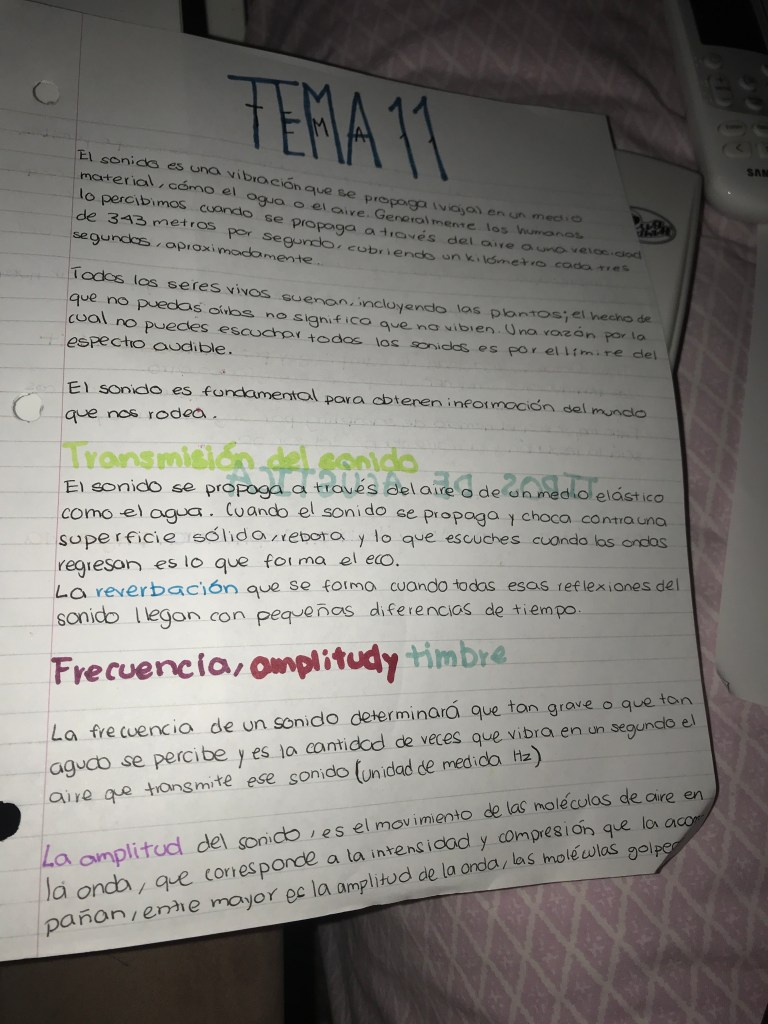 TEMA 11
El sonido es una vibración que se propaga (viaja) en un medio
material, cómo el agua o el aire. Generalmente los humanos
lo percibimos cuando se propaga a través del aire a una velocidad
de 343 metros por segundo, cubriendo un kilómetro cada tres
segundos, aproximadamente.
Todos los seres vivos suenan, incluyendo las plantas; el hecho de
que no puedas oírlos no significa que no vibien. Una razón por la
cual no puedes escuchar todos los sonidos es por el límite del
espectio audible.
El sonido es fundamental para obtenen información del mundo
que nos rodea.
Transmisión del sonido
El sonido se propaga a través del aire o de un medio elástico
como el agua. Cuando el sonido se propaga y choca contra una
superficie sólida, rebota y lo que escuches cuando las ondas
regresan es lo que forma el eco.
La reverbación que se forma cuando todas esas reflexiones del
sonido llegan con pequeñas diferencias de tiempo.
Frecuencia, amplitud y timbre
La frecuencia de un sonido determinará que tan grave o que tan
agudo se percibe y es la cantidad de veces que vibra en un segundo el
aire que transmite ese sonido (unidad de medida Hz)
La amplitud del sonido, es el movimiento de las moléculas de aire en
la onda, que corresponde a la intensidad y compresión que la acom
pañan, entre mayor es la amplitud de la onda, las moléculas golpea
TIPOS DE ACUSTICA
SAM